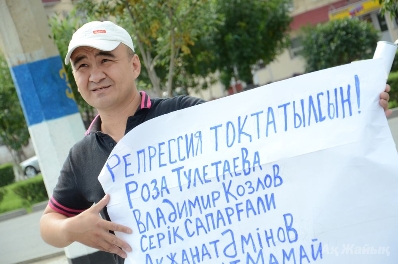 РЕПРЕССИЯ ТОКТАТЫЛСЫН!
РОЗА ТУЛЕТАЕВА
ВЛАДИМИР КОЗЛОВ
СЕРІК САПАРҒАЛИ
АКЖАНАТ ӘМІНОВ
МАМАЙ
Ақ Жайық